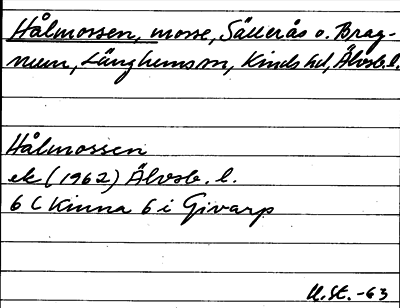 Hålmossen, mosse, Sällerås o. Brag-
num, Länghems sn, Kinds hd, Älvsb. l.
Hålmossen
ek (1962) Älvsb. l.
6 C Kinna 6 i Givarp
U.St. -63